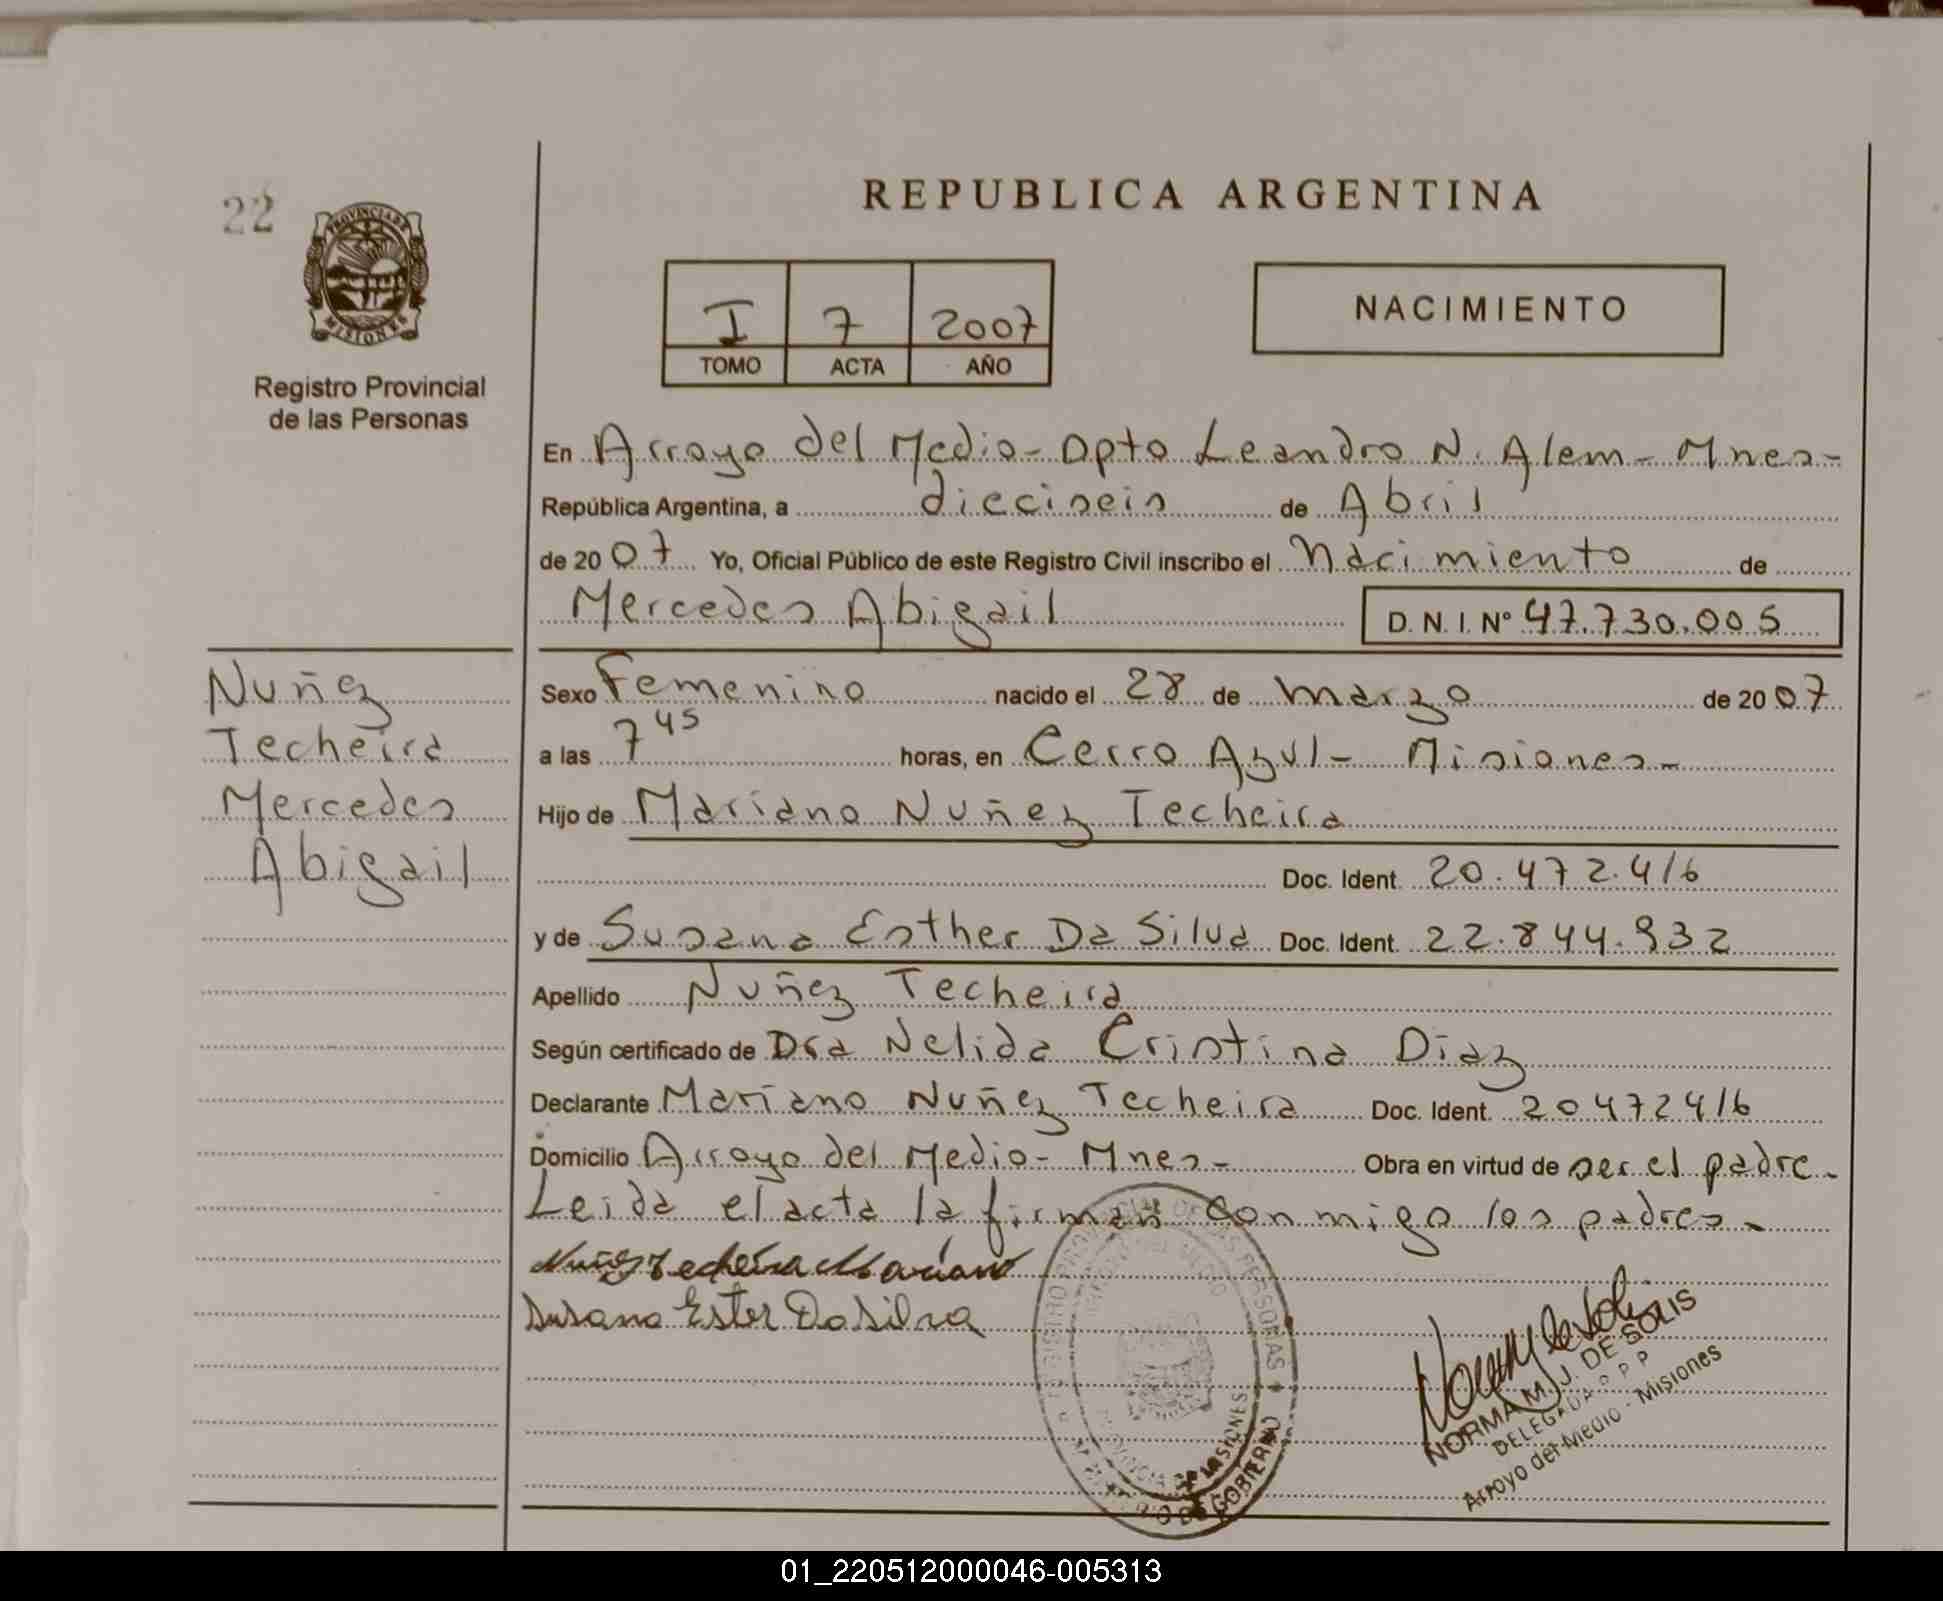 22
PROVINCIA DE
MISIONES
Registro Provincial
de las Personas
REPUBLICA ARGENTINA
I 7 2007
TOMO ACTA AÑO
NACIMIENTO
En Arroyo del Medio - Dpto Leandro N. Alem - Mnes -
República Argentina, a dieciseis de Abril
de 2007 Yo, Oficial Público de este Registro Civil inscribo el Nacimiento de
Mercedes Abigail D.N.I. Nº 47.730.005
Nuñez
Techeira
Mercedes
Abigail
Sexo Femenino nacido el 28 de marzo de 2007
a las 7 45 horas, en Cerro Azul - Misiones -
Hijo de Mariano Nuñez Techeira
Doc. Ident. 20.472.416
y de Susana Esther Da Silva Doc. Ident. 22.844.932
Apellido Nuñez Techeira
Según certificado de Dra Nelida Cristina Diaz
Declarante Mariano Nuñez Techeira Doc. Ident. 20472416
Domicilio Arroyo del Medio - Mnes - Obra en virtud de ser el padre -
Leida el acta la firman con migo los padres -
Nuñez Techeira Mariano
Susana Ester Da Silva
REGISTRO PROVINCIAL DE LAS PERSONAS
MISIONES
DE GOBIERNO
NORMA M. J. DE SOLIS
DELEGADA R P P
Arroyo del Medio - Misiones
01_220512000046-005313